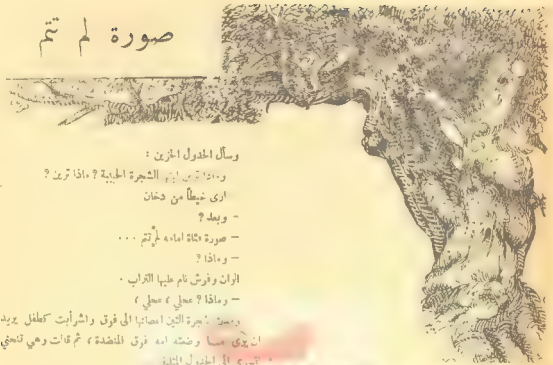 صورة لم تتم
وسأل الجدول الحزين :
الشجرة الحبيبة ? ماذا ترين ?
ارى خيطاً من دخان
- وبعد ?
- صورة فتاة امامه لم تتم ...
- وماذا ?
الوان وفرش نام عليها التراب .
- وماذا ? عجلي ، عجلي ،
شجرة التين اغصانها الى فوق واشرأبت كطفل يريد
ان يرى مـا وضعته امه فوق المنضدة ، ثم قالت وهي تنحني
الى الجدول